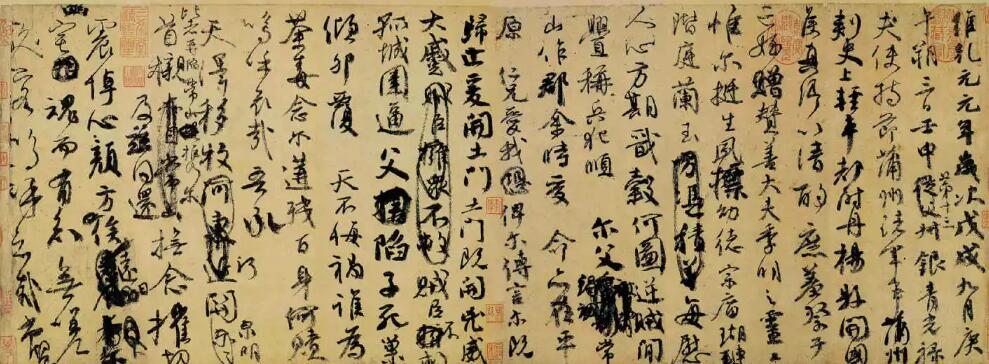 維乾元元年歲次戊戌九月庚
午朔三日壬申第十三從父銀青光祿
夫使持節蒲州諸軍事蒲州
刺史上輕車都尉丹楊縣開國
侯真卿以清酌庶羞祭于
亡姪贈贊善大夫季明之靈
惟爾挺生夙標幼德宗廟瑚璉
階庭蘭玉每慰
人心方期戩穀何圖逆賊閒
釁稱兵犯順爾父竭誠常
山作郡余時受命亦在平
原仁兄愛我俾爾傳言爾既
歸止爰開土門土門既開兇威
大蹙賊臣不救
孤城圍逼父陷子死巢
傾卵覆天不悔禍誰為
荼毒念爾遘殘百身何贖
嗚乎哀哉吾承
天澤移牧河關泉明
比者再陷常山攜爾
首櫬及茲同還撫念摧切
震悼心顏方俟遠日
宅魂而有知無嗟
久客嗚呼哀哉尚饗